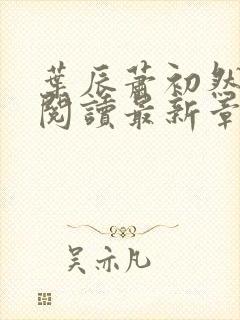 葉辰蕭初然
閱讀最新章
吴亦凡